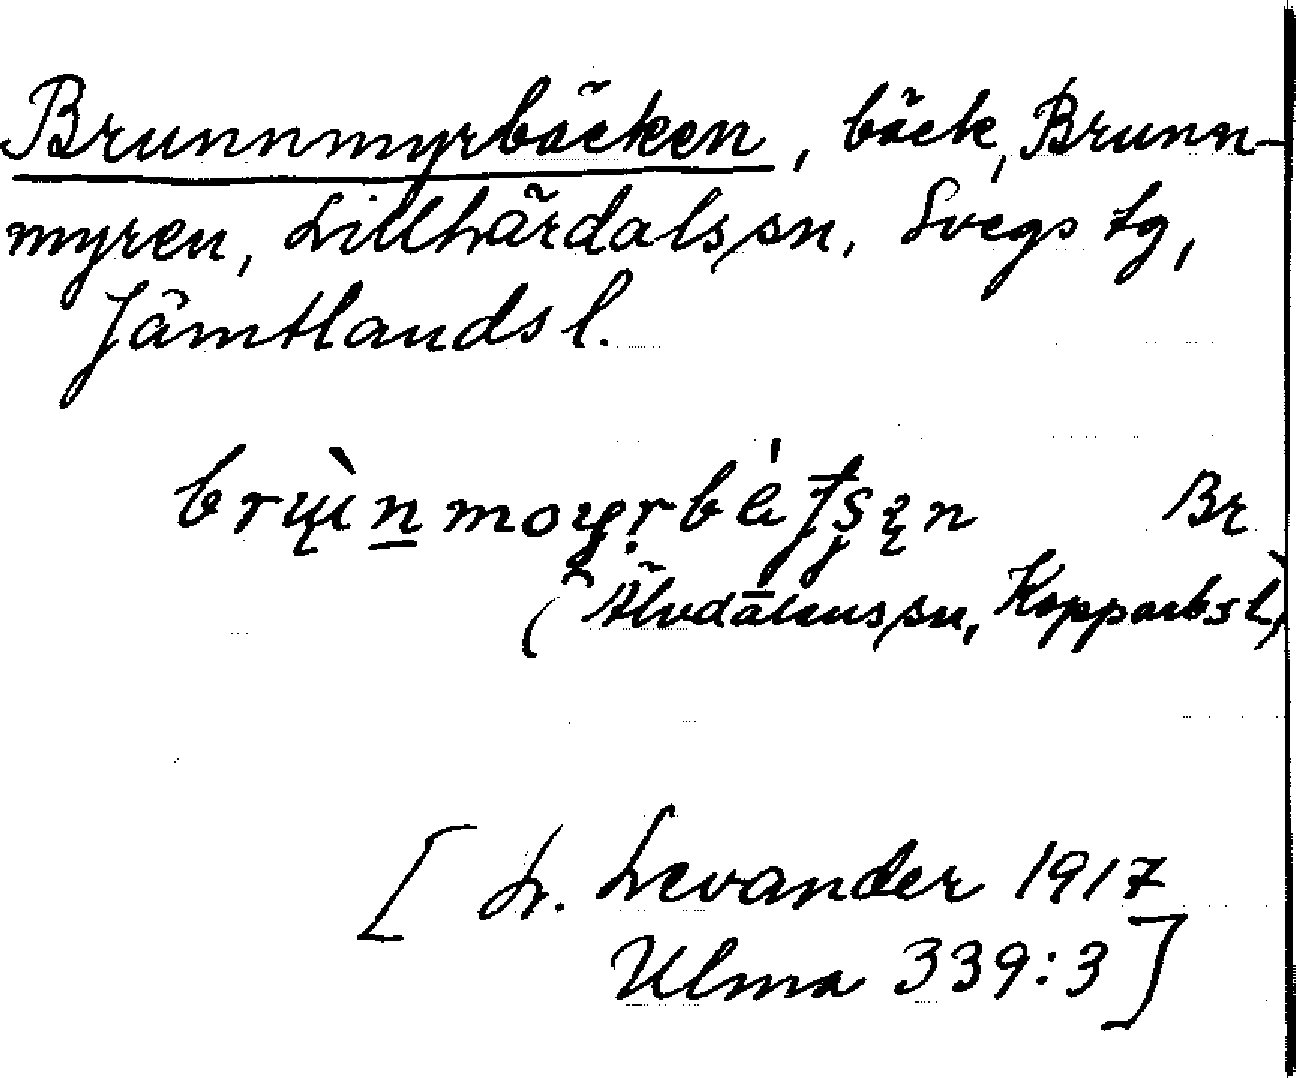 Brunnmyrbäcken, bäck, Brunn-
myren, Lillhärdals sn, Svegs tg,
Jämtlands l.
Br
(Älvdalens sn, Kopparbs l)
[L. Levander 1917
Ulma 339:3]